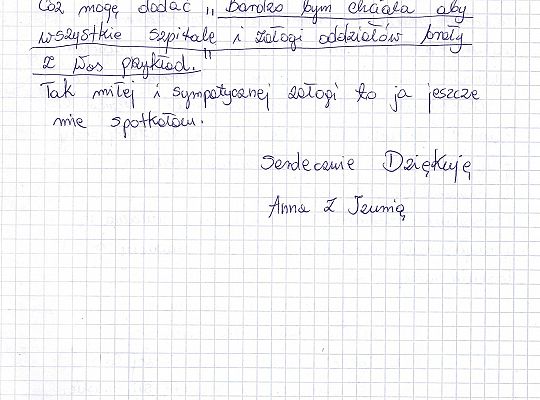 Cóż mogę dodać „ bardzo bym chciała aby
wszystkie szpitale i załogi oddziałów brały
z Was przykład."
Tak miłej i sympatycznej załogi to ja jeszcze
nie spotkałam.
Serdecznie Dziękuję
Anna z Izunią